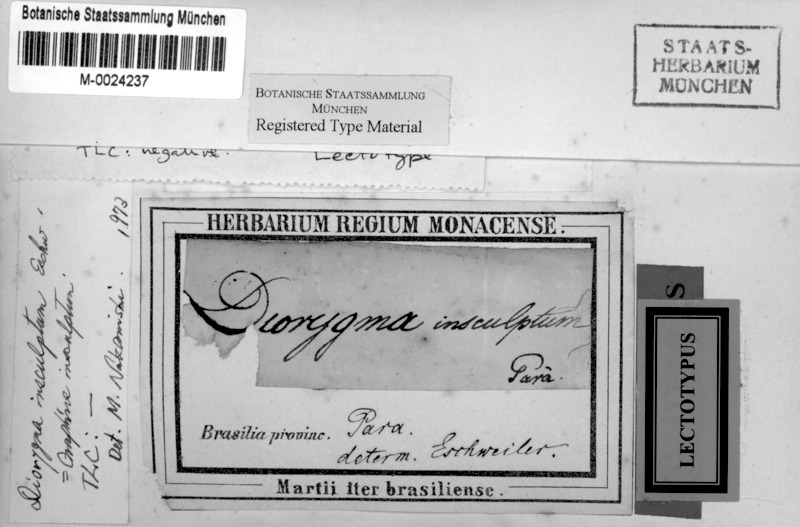 Botanische Staatssammlung München
M-0024237
STAATS-
HERBARIUM
MÜNCHEN
BOTANISCHE STAATSSAMMLUNG
MÜNCHEN
Registered Type Material
TLC: negative. Lectotype
HERBARIUM REGIUM MONACENSE.
Diorygma insculptum
Parà.
Brasilia provinc. Para.
determ. Eschweiler.
Martii iter brasiliense.
Diorygma insculptum Eschw.
= Graphina insculptum
TLC: —
Det. M. Nakanishi. 1973
S
LECTOTYPUS